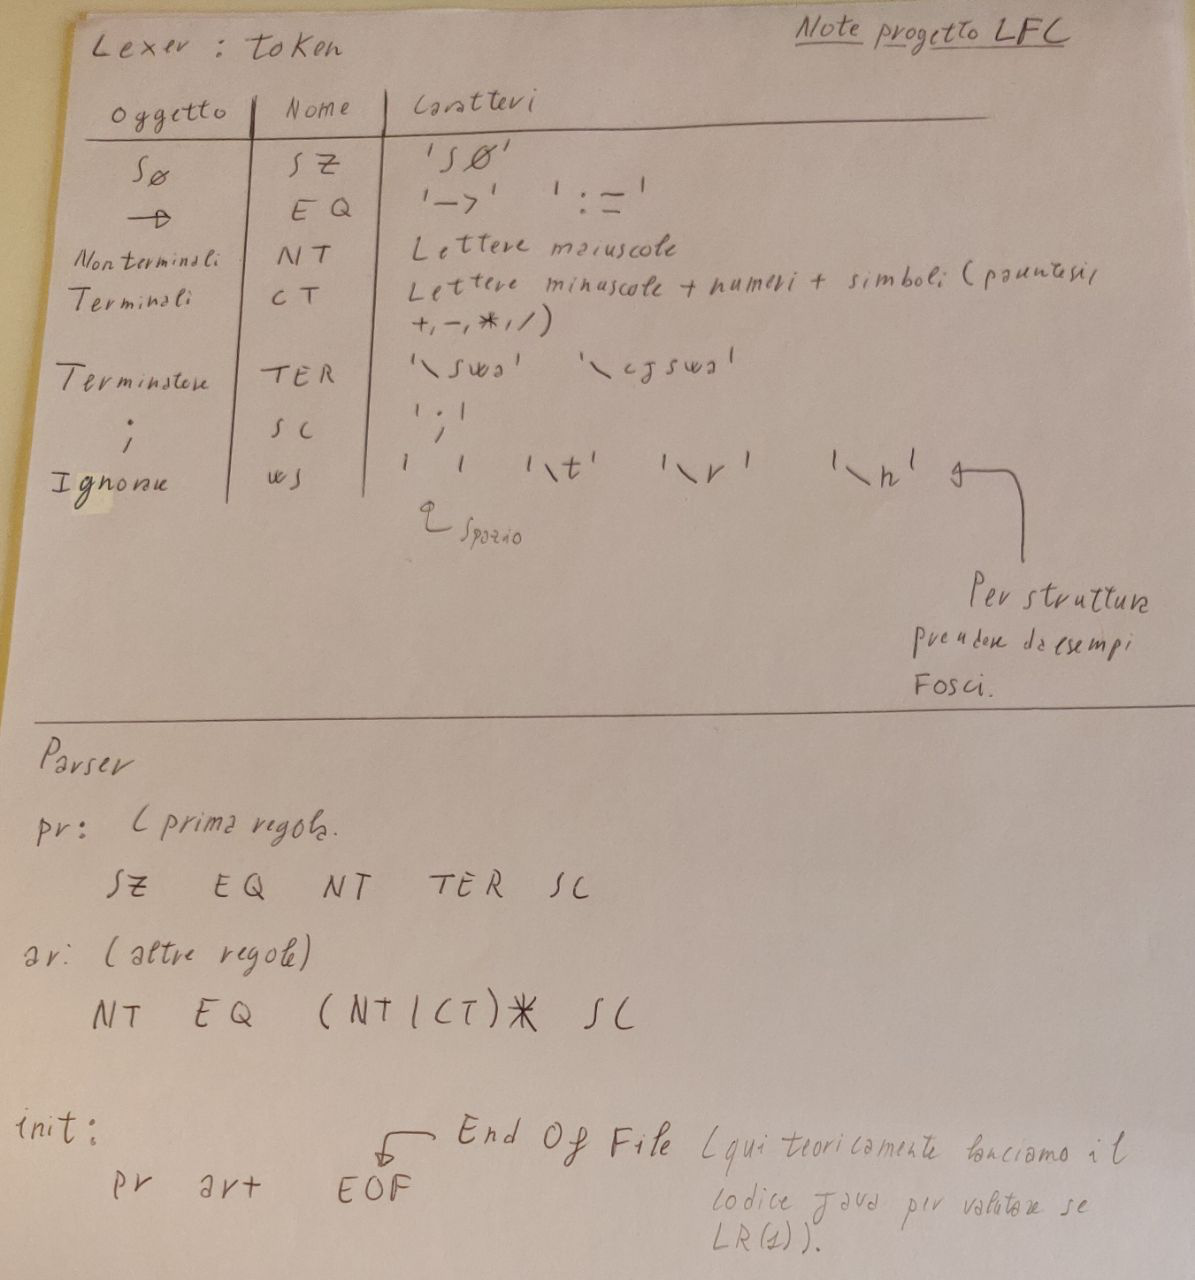 Note progetto LFC
Lexer : token
Oggetto | Nome | Caratteri
S∅ | SZ | 'S∅'
→ | EQ | '->' ':='
Non terminali | NT | Lettere maiuscole
Terminali | CT | Lettere minuscole + numeri + simboli (parentesi,
+, -, *, /)
Terminatore | TER | '\swa' '\cgswa'
; | SC | ';'
Ignorare | WS | ' ' '\t' '\r' '\n'
Spazio
Per struttura
prendere da esempi
FOSCI.
Parser
pr: (prima regola.
SZ EQ NT TER SC
ar: (altre regole)
NT EQ (NT|CT)* SC
init:
End Of File (qui teoricamente lanciamo il
pr ar+ EOF
codice Java per valutare se
LR(1)).